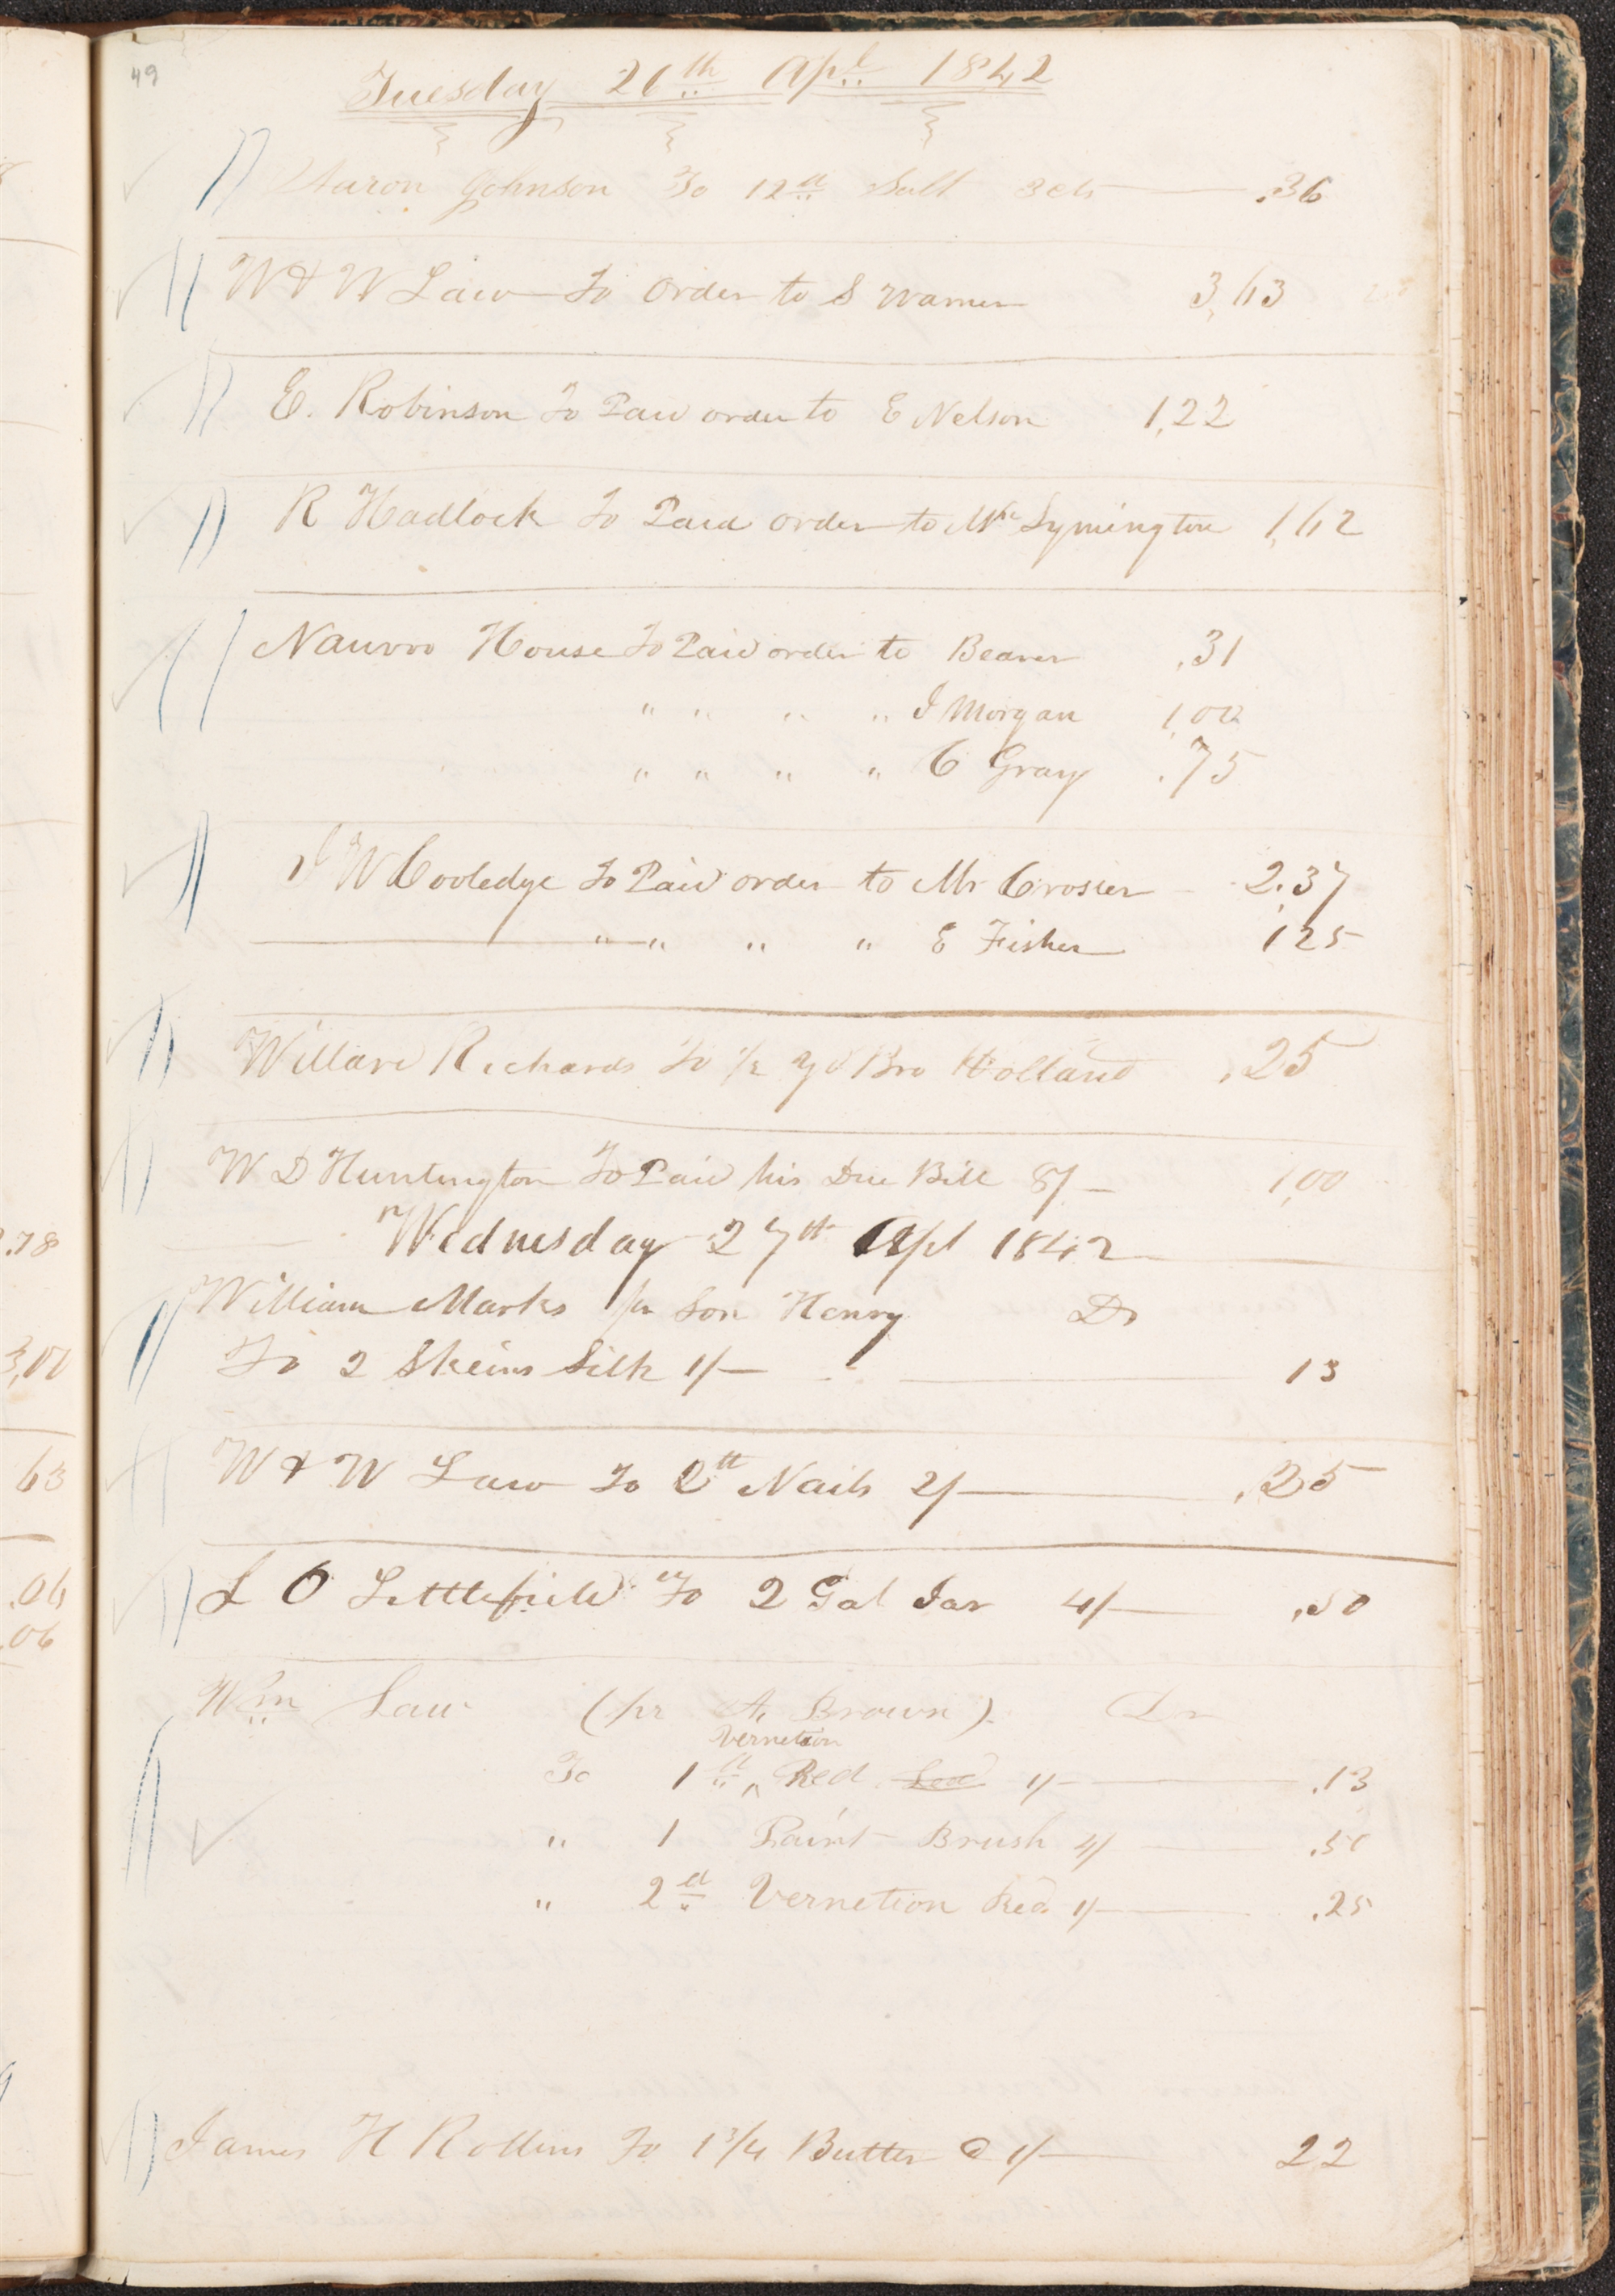 49
Tuesday 26th Apl 1842
Aaron Johnson To 12 lb Salt 3 cts .36
W & W Law To Order to S Warner 3,63
E. Robinson To Paid order to E Nelson 1,22
R Hadlock To Paid order to Mr Symington 1,62
Nauvoo House To Paid order to Bearer .31
" " " " I Morgan 1,00
" " " " C Gray .75
J W Cooledge To Paid order to Mr Crosier 2.37
" " " " E Fisher 1,25
Willard Richards To 1/2 yd Bro Holland .25
W D Huntington To Paid his Due Bill 8/- 1,00
Wednesday 27th Apl 1842
William Marks pr Son Henry Dr
To 2 Skeins Silk 1/- 13
W & W Law To 2 lb Nails 2/- .25
L O Littlefield To 2 Gal Jar 4/- .50
Wm Law (pr A. Brown) Dr
Vernetion
To 1 lb ^ Red Led 1/- .13
" 1 Paint Brush 4/ .50
" 2 lb Vernetion Red 1/- .25
James H Rollins To 1 3/4 Butter @ 1/- 22
.78
3,17
63
.06
.06